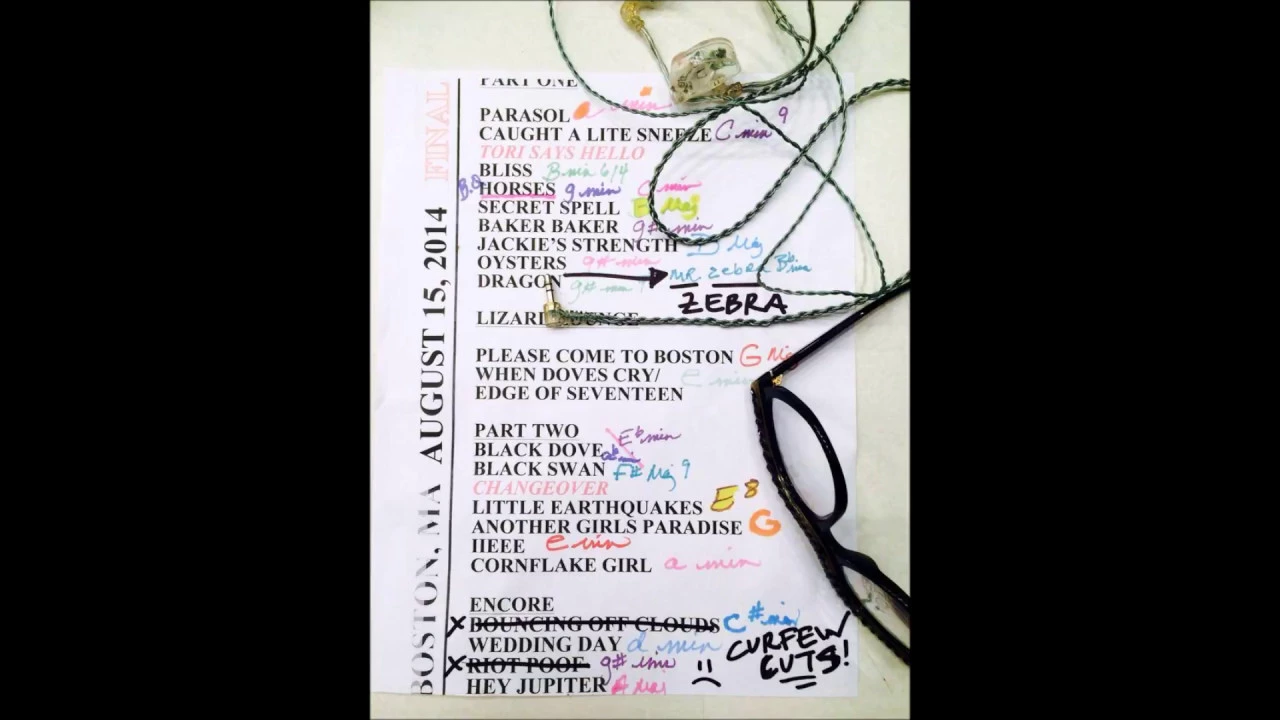 FINAL
BOSTON, MA AUGUST 15, 2014
PART ONE
PARASOL a min
CAUGHT A LITE SNEEZE C min 9
TORI SAYS HELLO
BLISS B min 6/4
B.O. HORSES g min C min
SECRET SPELL E Maj
BAKER BAKER g# min
JACKIE'S STRENGTH D Maj
OYSTERS g# min
DRAGON g# min MR Zebra Bb min
ZEBRA
LIZARD LOUNGE
PLEASE COME TO BOSTON G
WHEN DOVES CRY/ e min
EDGE OF SEVENTEEN
PART TWO
BLACK DOVE Eb min
BLACK SWAN F# Maj 9
CHANGEOVER
LITTLE EARTHQUAKES E 8
ANOTHER GIRLS PARADISE G
IIEEE e min
CORNFLAKE GIRL a min
ENCORE
X BOUNCING OFF CLOUDS C# min
WEDDING DAY d min
X RIOT POOF g# min
HEY JUPITER A Maj
CURFEW
CUTS!